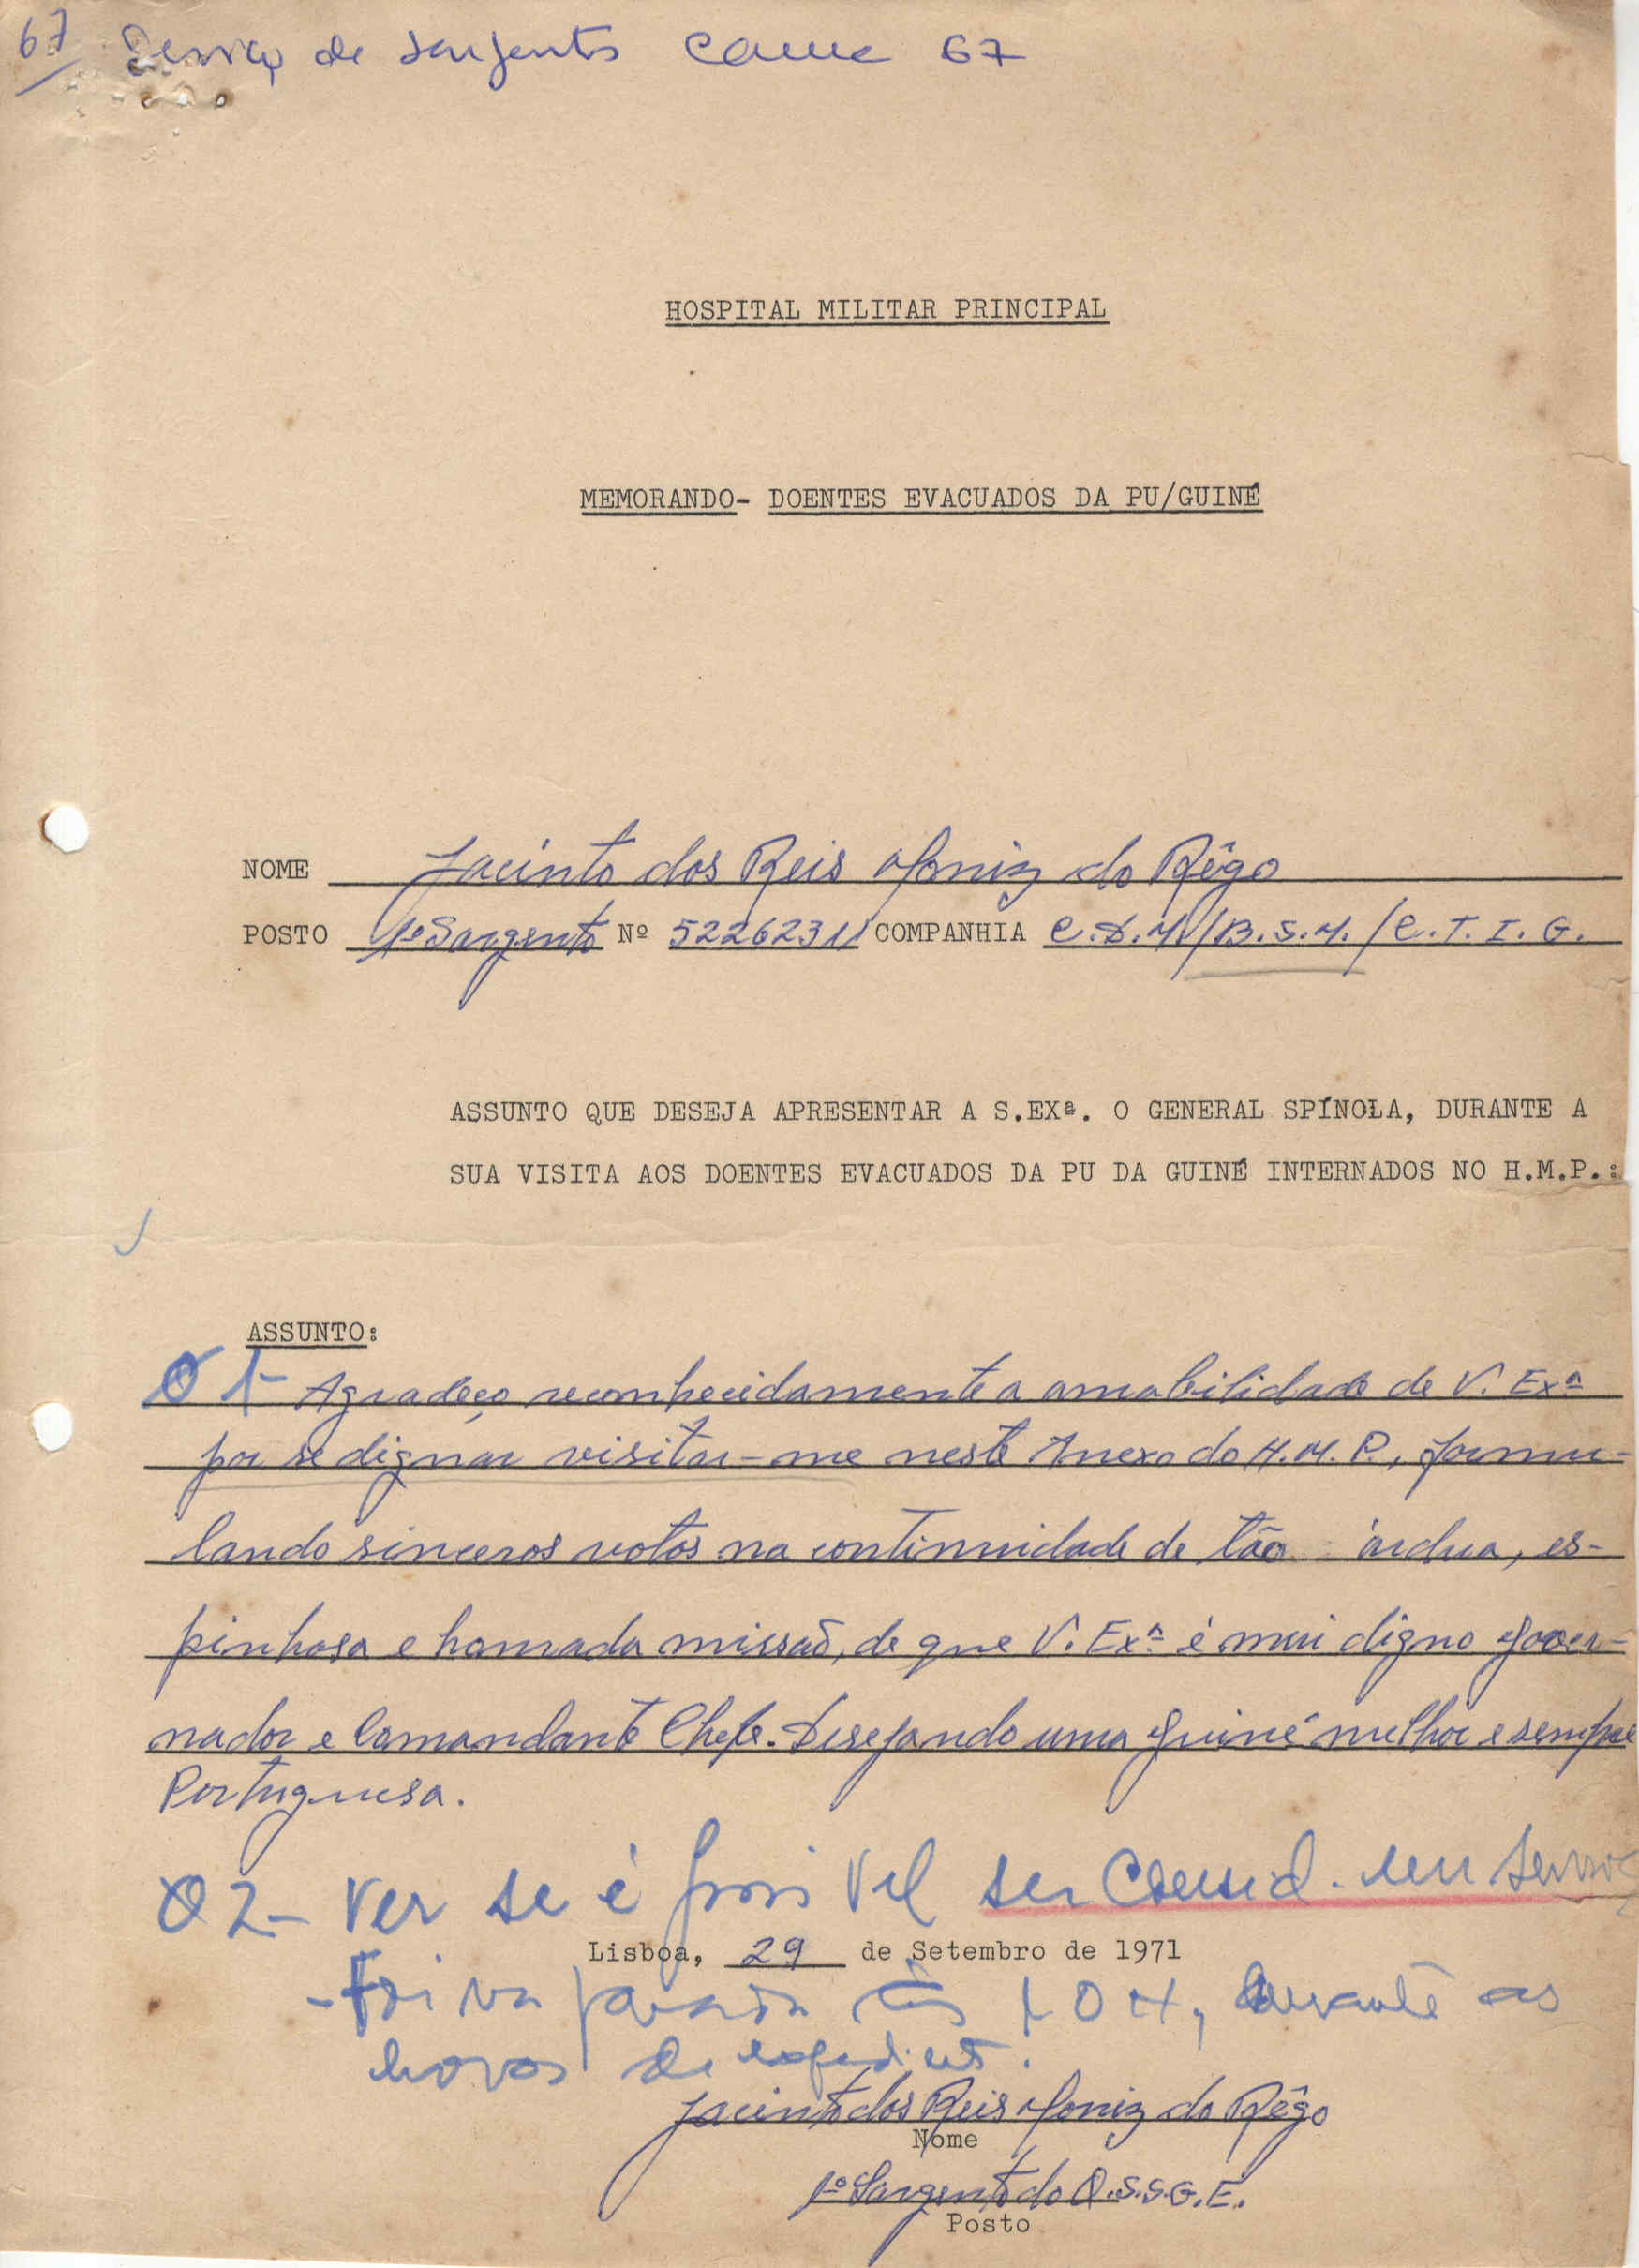 67 Serviço de Sargentos Cama 67
HOSPITAL MILITAR PRINCIPAL
MEMORANDO- DOENTES EVACUADOS DA PU/GUINÉ
NOME Jacinto dos Reis Moniz do Rêgo
POSTO 1º Sargento Nº 52262311 COMPANHIA C.D.M./B.S.M./C.T.I.G.
ASSUNTO QUE DESEJA APRESENTAR A S.EXª. O GENERAL SPÍNOLA, DURANTE A
SUA VISITA AOS DOENTES EVACUADOS DA PU DA GUINÉ INTERNADOS NO H.M.P.:
ASSUNTO:
1- Agradeço reconhecidamente a amabilidade de V. Exª
por se dignar visitar-me neste Anexo do H.M.P., formu-
lando sinceros votos na continuidade de tão árdua, es-
pinhosa e honrada missão, de que V. Exª é mui digno Gover-
nador e Comandante Chefe. Desejando uma Guiné melhor e sempre
Portuguesa.
2- Ver se é possivel ser Consid. em serviço
Lisboa, 29 de Setembro de 1971
- Foi na parada às 10H, durante as
horas de expediente.
Jacinto dos Reis Moniz do Rêgo
Nome
1º Sargento do Q.S.S.G.E.
Posto